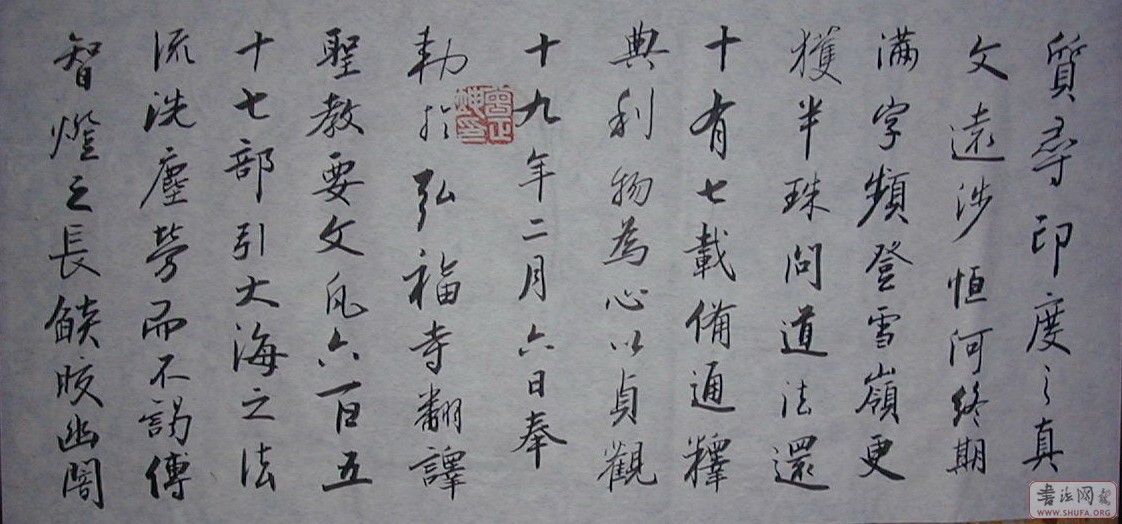 質尋印度之真
文遠涉恒河終期
滿字頻登雪嶺更
獲半珠問道法還
十有七載備通釋
典利物為心以貞觀
十九年二月六日奉
勅於弘福寺翻譯
聖教要文凡六百五
十七部引大海之法
流洗塵勞而不竭傳
智燈之長燄皎幽闇
書法网
WWW.SHUFA.ORG